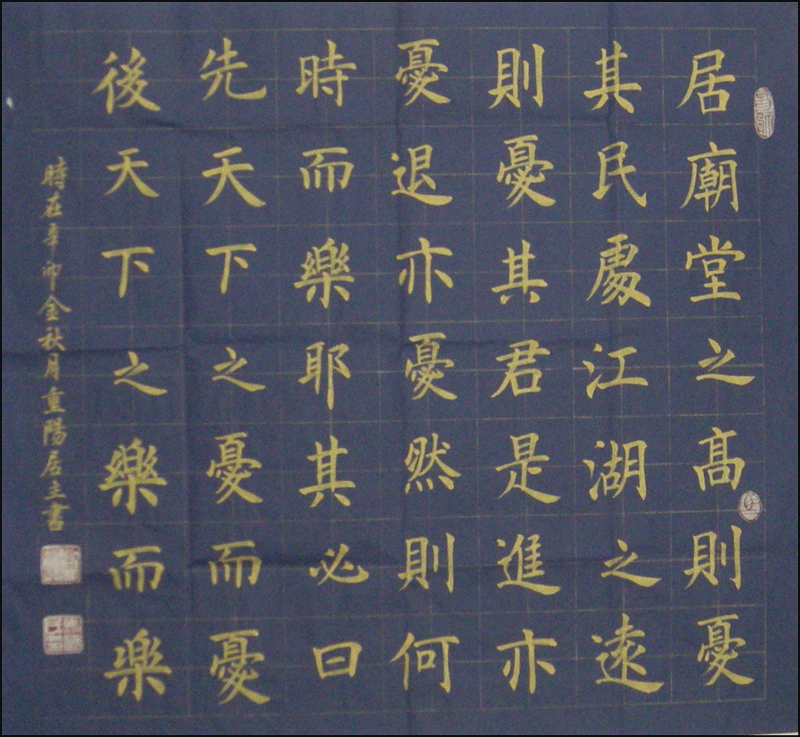 居廟堂之高則憂
其民處江湖之遠
則憂其君是進亦
憂退亦憂然則何
時而樂耶其必曰
先天下之憂而憂
後天下之樂而樂
時在辛卯金秋月重陽居主書